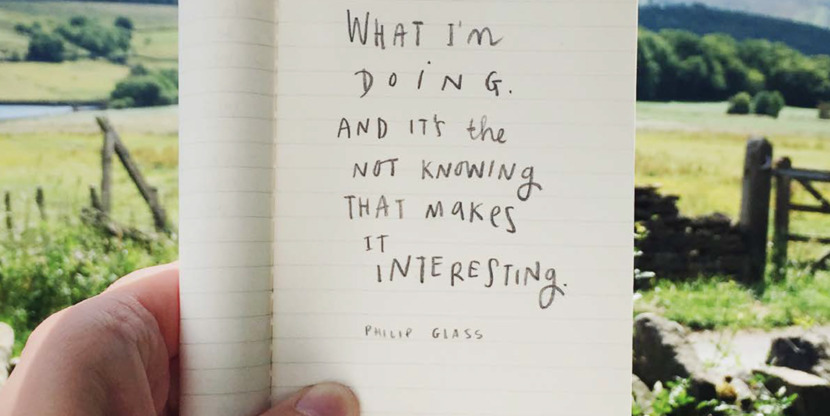 WHAT I'm
DOING.
AND IT's the
NOT KNOWINg
THAT MakeS
IT
INTERESTINg.
PHILIP GLASS